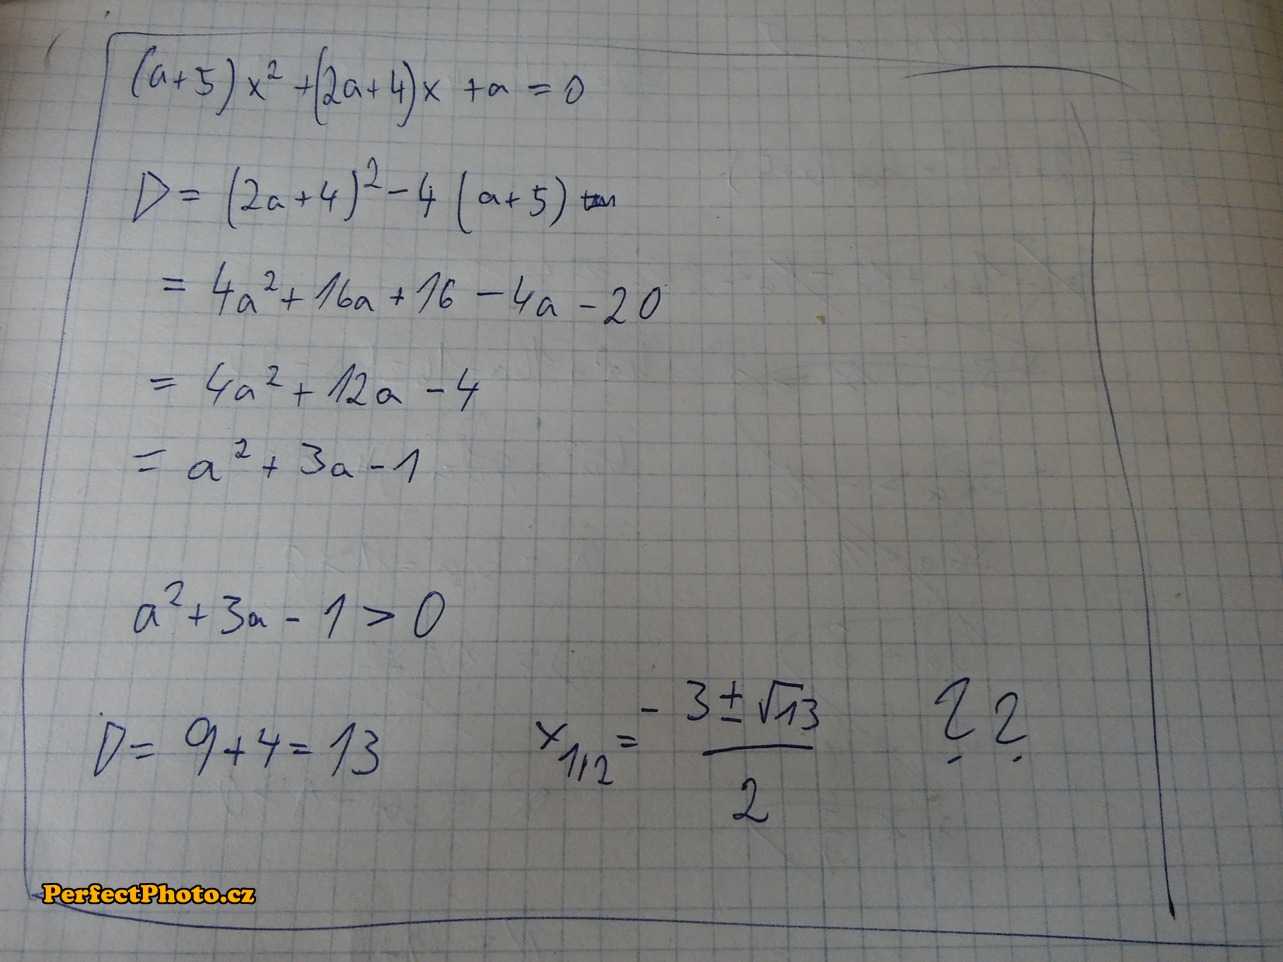 (a+5)x²+(2a+4)x +a = 0
D = (2a+4)² - 4 (a+5)
= 4a² + 16a + 16 - 4a - 20
= 4a² + 12a - 4
= a² + 3a - 1
a² + 3a - 1 > 0
D = 9+4 = 13 x₁,₂ = - 3 ± √13 / 2 ??
PerfectPhoto.cz